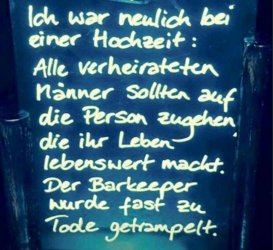 Ich war neulich bei
einer Hochzeit:
Alle verheirateten
Männer sollten auf
die Person zugehen,
die ihr Leben
lebenswert macht.
Der Barkeeper
wurde fast zu
Tode getrampelt.